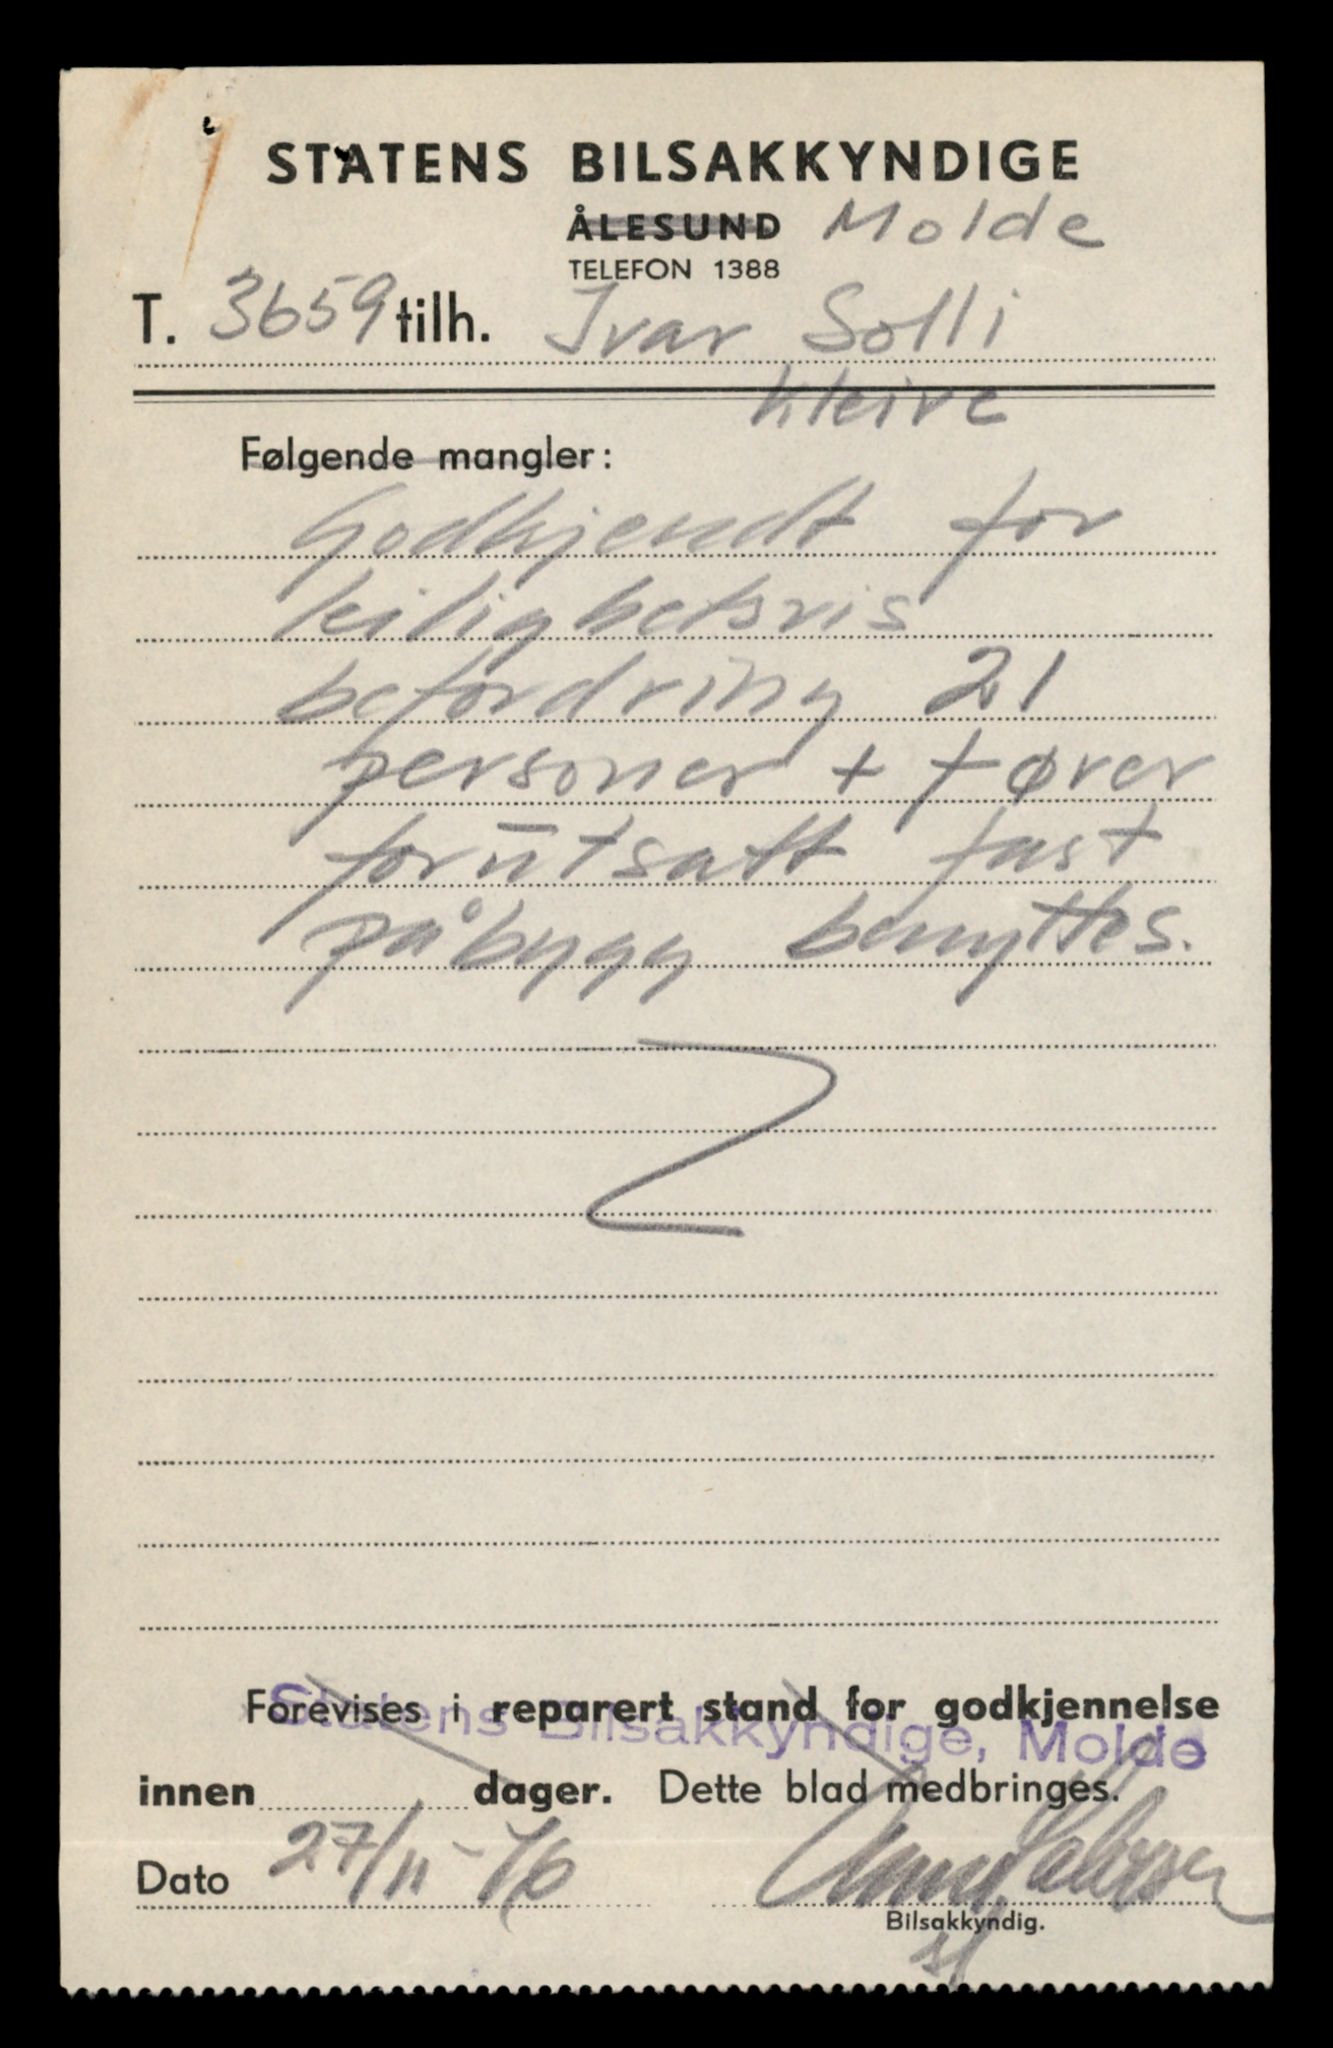 STATENS BILSAKKYNDIGE
ÅLESUND Molde
TELEFON 1388
T. 3659 tilh. Ivar Solli
Kleive
Følgende mangler:
Godkjendt for
leilighetsvis
befordring 21
personer + fører
forutsatt fast
påbygg benyttes.
Forevises i reparert stand for godkjennelse
Statens Bilsakkyndige, Molde
innen dager. Dette blad medbringes.
Dato 27/11-46
Bilsakkyndig.